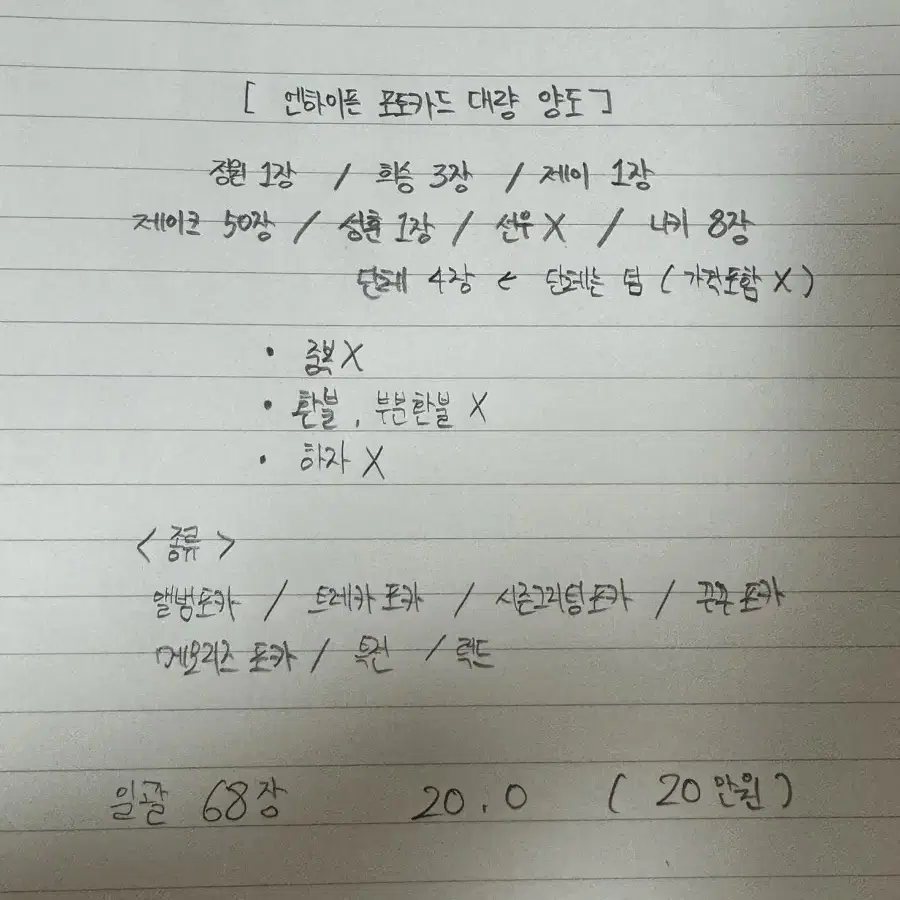 [ 엔하이픈 포토카드 대량 양도 ]
정원 1장 / 희승 3장 / 제이 1장
제이크 50장 / 성훈 1장 / 선우 X / 니키 8장
단체 4장 ← 단체는 덤 ( 가격포함 X )
• 중복 X
• 환불, 부분환불 X
• 하자 X
< 종류 >
앨범포카 / 트레카 포카 / 시즌그리팅 포카 / 꾸꾸 포카
메모리즈 포카 / 특전 / 럭드
일괄 68장 20.0 ( 20만원 )